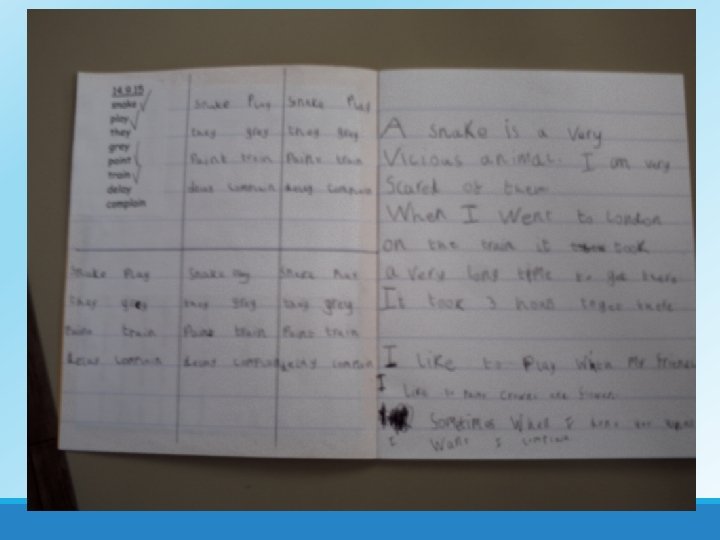 14.9.15
snake
play
they
grey
paint
train
delay
complain
Snake Play
they grey
Paint train
delay complain
Snake Play
they grey
Paint train
delay complain
Snake Play
they grey
Paint train
delay complain
Snake Play
they grey
Paint train
delay complain
Snake Play
they grey
Paint train
delay complain
A snake is a very
Vicious animal. I am very
Scared of them
When I Went to London
on the train it took
a very long time to get there
It took 3 hours
I Like to Play With My friends
I Like to
Sometimes When I
I Want I complain